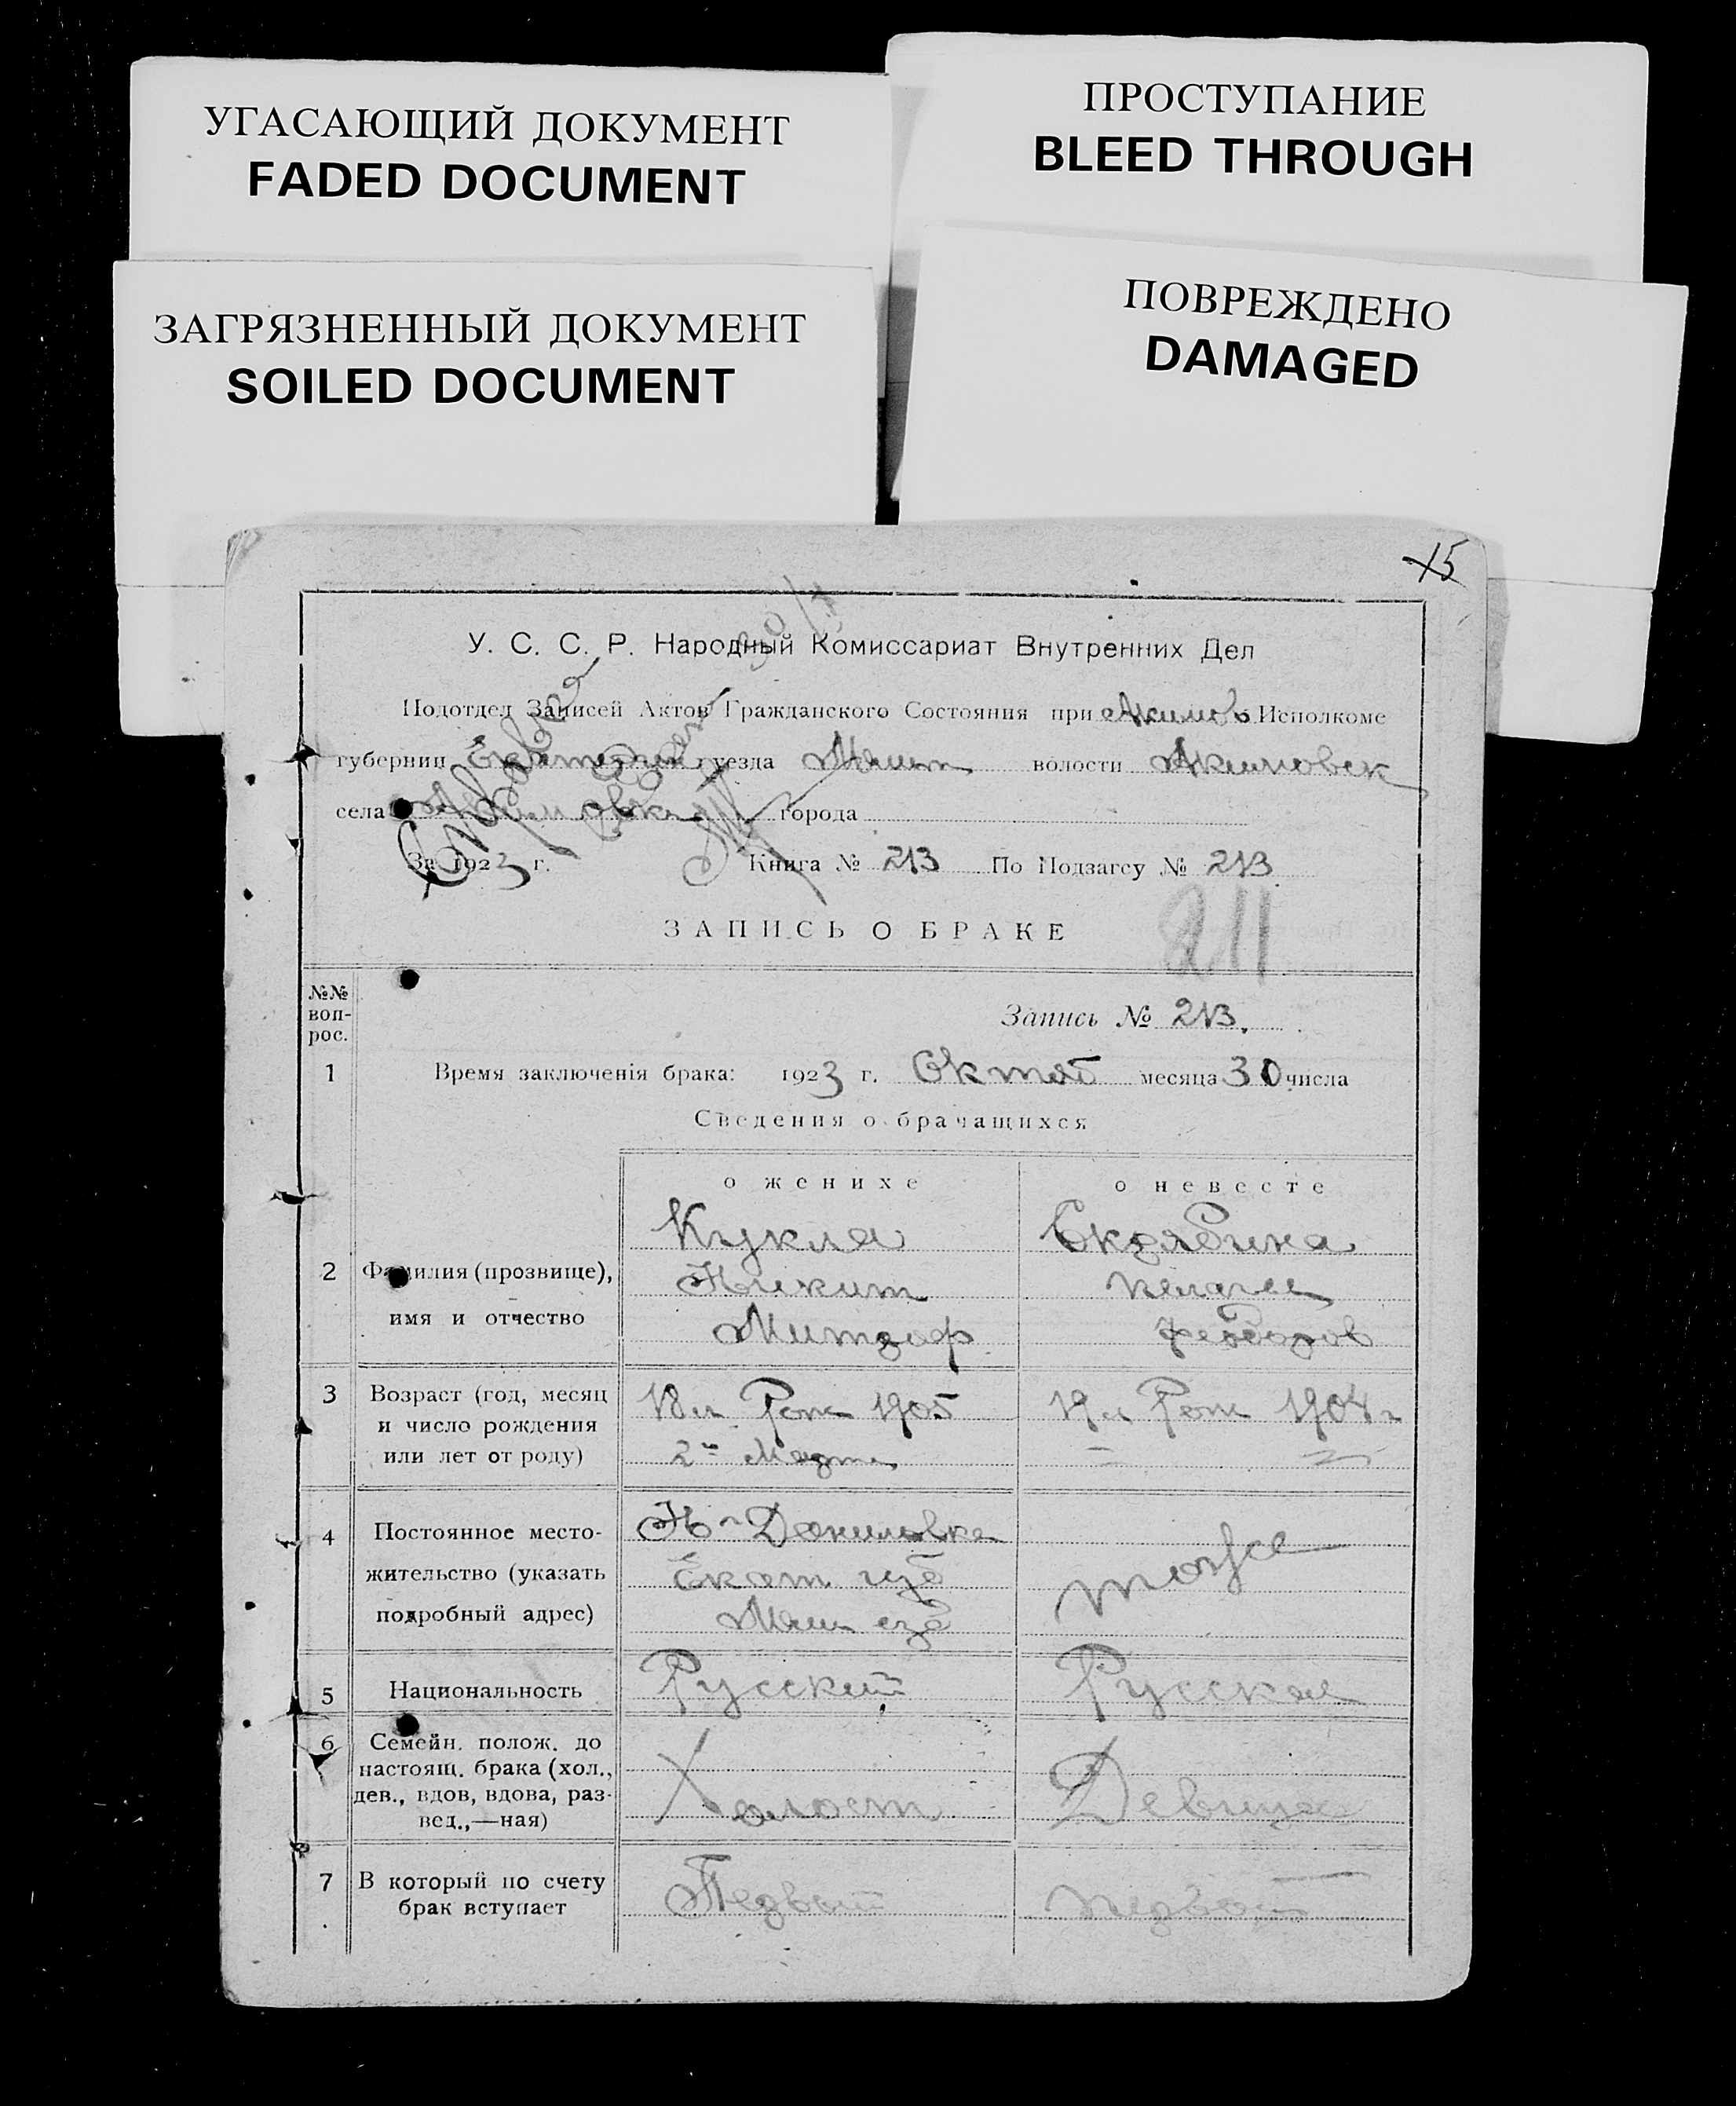 УГАСАЮЩИЙ ДОКУМЕНТ
FADED DOCUMENT
ПРОСТУПАНИЕ
BLEED THROUGH
ЗАГРЯЗНЕННЫЙ ДОКУМЕНТ
SOILED DOCUMENT
ПОВРЕЖДЕНО
DAMAGED
15
У. С. С. Р. Народный Комиссариат Внутренних Дел
Подотдел Записей Актов Гражданского Состояния при Акимов Исполкоме
губернии Екатерин уезда Мелит волости Акимовск
села Акимовка города
За 1923 г. Книга № 213 По Подзагсу № 213
ЗАПИСЬ О БРАКЕ
211
№№ воп-
рос.
Запись № 213.
1 Время заключенія брака: 1923 г. Октяб месяца 30 числа
Сведения о брачащихся
о женихе о невесте
Кукла Скрябина
2 Фамилия (прозвище), Никит Пелагея
имя и отчество Митроф Феодоров
3 Возраст (год, месяц 18 л. Рож 1905 19 л Рож 1904 г
и число рождения
или лет от роду) 2го Марта
4 Постоянное место- Н-Даниловка
жительство (указать Екат губ тоже
подробный адрес) Мели уез
5 Национальность Русский Русская
6 Семейн. полож. до
настоящ. брака (хол.,
дев., вдов, вдова, раз- Холост Девица
вед.,—ная)
7 В который по счету Первый первый
брак вступает